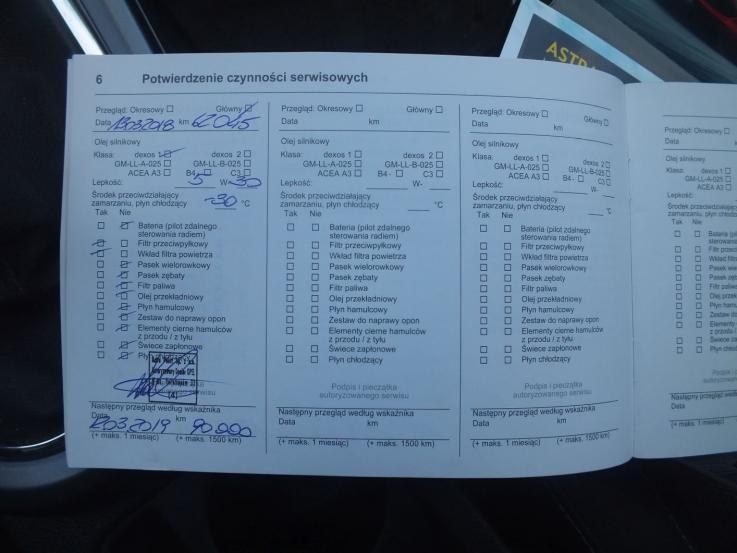 ASTRA
6 Potwierdzenie czynności serwisowych
Przegląd: Okresowy ☐ Główny ☑
Data 13.03.2018 km 62.045
Olej silnikowy
Klasa: dexos 1 ☑ dexos 2 ☐
GM-LL-A-025 ☐ GM-LL-B-025 ☐
ACEA A3 ☐ B4- ☐ C3 ☐
Lepkość: 5 W- 30
Środek przeciwdziałający
zamarzaniu, płyn chłodzący -30 °C
Tak Nie
☐ ☑ Bateria (pilot zdalnego
sterowania radiem)
☑ ☐ Filtr przeciwpyłkowy
☑ ☐ Wkład filtra powietrza
☐ ☑ Pasek wielorowkowy
☐ ☑ Pasek zębaty
☐ ☑ Filtr paliwa
☐ ☑ Olej przekładniowy
☐ ☑ Płyn hamulcowy
☐ ☑ Zestaw do naprawy opon
☐ ☑ Elementy cierne hamulców
z przodu / z tyłu
☐ ☑ Świece zapłonowe
☐ ☑
(4)
serwisu
Następny przegląd według wskaźnika
Data 12.03.2019 km 90.000
(+ maks. 1 miesiąc) (+ maks. 1500 km)
Przegląd: Okresowy ☐ Główny ☐
Data km
Olej silnikowy
Klasa: dexos 1 ☐ dexos 2 ☐
GM-LL-A-025 ☐ GM-LL-B-025 ☐
ACEA A3 ☐ B4 - ☐ C3 ☐
Lepkość: W-
Środek przeciwdziałający
zamarzaniu, płyn chłodzący °C
Tak Nie
☐ ☐ Bateria (pilot zdalnego
sterowania radiem)
☐ ☐ Filtr przeciwpyłkowy
☐ ☐ Wkład filtra powietrza
☐ ☐ Pasek wielorowkowy
☐ ☐ Pasek zębaty
☐ ☐ Filtr paliwa
☐ ☐ Olej przekładniowy
☐ ☐ Płyn hamulcowy
☐ ☐ Zestaw do naprawy opon
☐ ☐ Elementy cierne hamulców
z przodu / z tyłu
☐ ☐ Świece zapłonowe
☐ ☐ Płyn chłodzący
Podpis i pieczątka
autoryzowanego serwisu
Następny przegląd według wskaźnika
Data km
(+ maks. 1 miesiąc) (+ maks. 1500 km)
Przegląd: Okresowy ☐ Główny ☐
Data km
Olej silnikowy
Klasa: dexos 1 ☐ dexos 2 ☐
GM-LL-A-025 ☐ GM-LL-B-025 ☐
ACEA A3 ☐ B4 - ☐ C3 ☐
Lepkość: W-
Środek przeciwdziałający
zamarzaniu, płyn chłodzący °C
Tak Nie
☐ ☐ Bateria (pilot zdalnego
sterowania radiem)
☐ ☐ Filtr przeciwpyłkowy
☐ ☐ Wkład filtra powietrza
☐ ☐ Pasek wielorowkowy
☐ ☐ Pasek zębaty
☐ ☐ Filtr paliwa
☐ ☐ Olej przekładniowy
☐ ☐ Płyn hamulcowy
☐ ☐ Zestaw do naprawy opon
☐ ☐ Elementy cierne hamulców
z przodu / z tyłu
☐ ☐ Świece zapłonowe
☐ ☐ Płyn chłodzący
Podpis i pieczątka
autoryzowanego serwisu
Następny przegląd według wskaźnika
Data km
(+ maks. 1 miesiąc) (+ maks. 1500 km)
Przegląd: Okresowy ☐
Data
Olej silnikowy
Klasa: dexos 1 ☐
GM-LL-A-025 ☐
ACEA A3 ☐
Lepkość:
Środek przeciwdziałający
zamarzaniu, płyn chłodzący
Tak Nie
☐ ☐ Bateria (pilot
☐ ☐ Filtr
☐ ☐ Wkład filtra
☐ ☐ Pasek
☐ ☐ Pasek
☐ ☐ Filtr paliwa
☐ ☐ Olej
☐ ☐ Płyn
☐ ☐ Zestaw do
☐ ☐ Elementy
z przodu /
☐ ☐ Świece
☐ ☐ Płyn
Podpis i
Następny przegląd według
Data
(+ maks. 1 miesiąc)